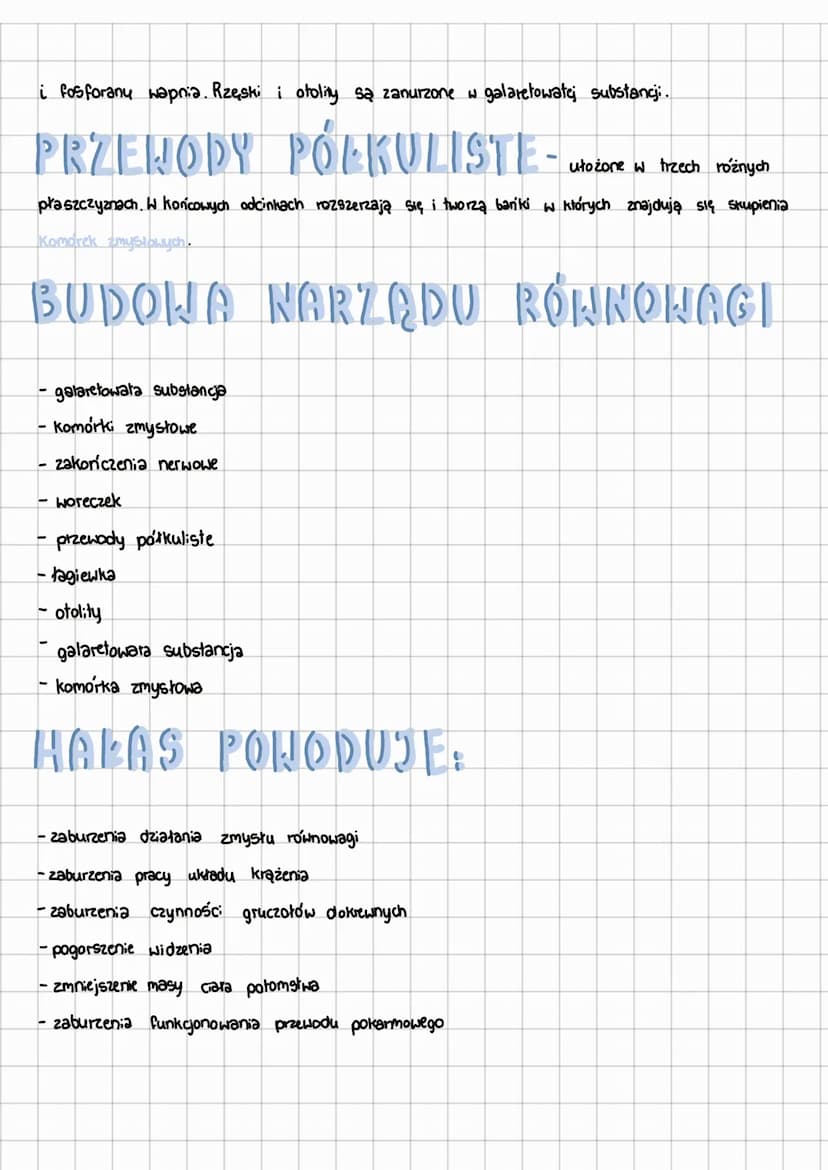 i fosforanu wapnia. Rzęski i otolity są zanurzone w galaretowatej substancji.
PRZEWODY PÓŁKULISTE - ułożone w trzech różnych
płaszczyznach. W końcowych odcinkach rozszerzają się i tworzą bańki w których znajdują się skupienia
komórek zmysłowych.
BUDOWA NARZĄDU RÓWNOWAGI
- galaretowata substancja
- komórki zmysłowe
- zakończenia nerwowe
- woreczek
- przewody półkuliste
- łagiewka
- otolity
- galaretowata substancja
- komórka zmysłowa
HAŁAS POWODUJE:
- zaburzenia działania zmysłu równowagi
- zaburzenia pracy układu krążenia
- zaburzenia czynności gruczołów dokrewnych
- pogorszenie widzenia
- zmniejszenie masy ciała potomstwa
- zaburzenia funkcjonowania przewodu pokarmowego